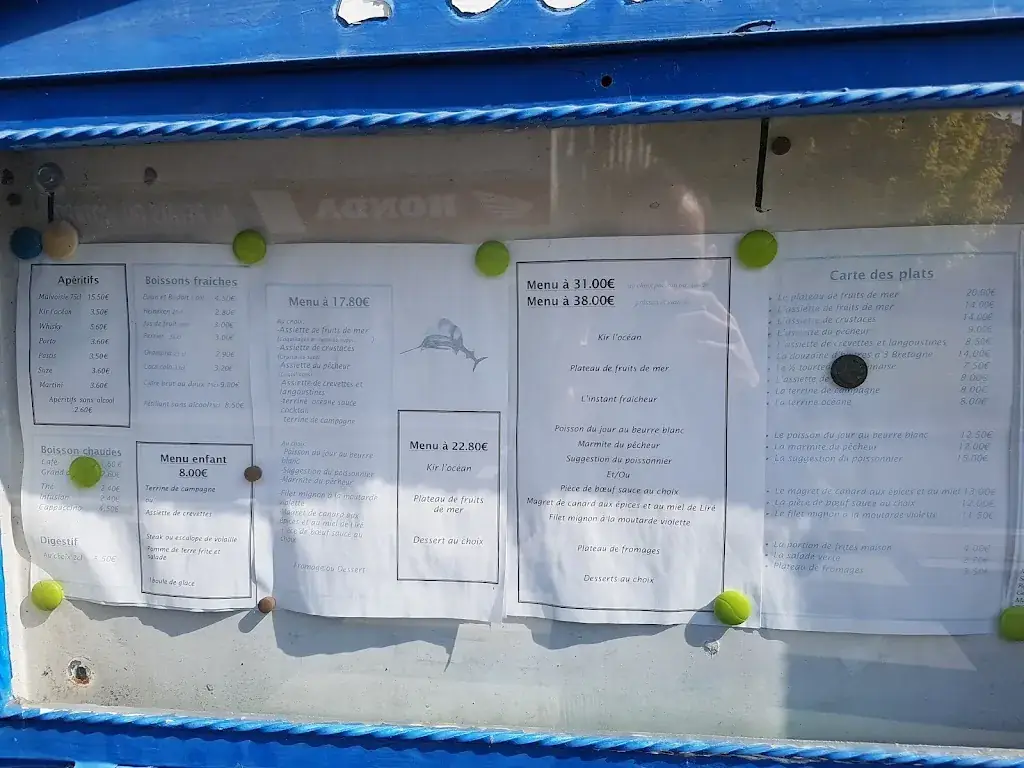 HONDA
Apéritifs
Malvoisie 75cl 15.50€
Kir l'océan 3.50€
Whisky 5.60€
Porto 3.60€
Pastis 3.50€
Suze 3.60€
Martini 3.60€
Apéritifs sans alcool
2.60€
Boissons fraîches
4.50€
2.80€
3.00€
2.90€
3.20€
8.50€
Boisson chaudes
Café
Grand
Thé
Infusion
Cappuccino 4.50€
Digestif
Menu enfant
8.00€
Terrine de campagne
ou
Assiette de crevettes
Steak ou escalope de volaille
Pomme de terre frite et
salade
1boule de glace
Menu à 17.80€
Au choix
Assiette de fruits de mer
Assiette de crustaces
Assiette du pêcheur
Assiette de crevettes et
langoustines
terrine océane sauce
cocktail
terrine de campagne
Au choix
Poisson du jour au beurre
blanc
Suggestion du poissonnier
Marmite du pêcheur
Filet mignon à la moutarde
violette
Magret de canard aux
épices et au miel de Liré
Pièce de bœuf sauce au
choix
Fromage ou Dessert
Menu à 22.80€
Kir l'océan
Plateau de fruits
de mer
Dessert au choix
Menu à 31.00€
Menu à 38.00€
Kir l'océan
Plateau de fruits de mer
L'instant fraicheur
Poisson du jour au beurre blanc
Marmite du pêcheur
Suggestion du poissonnier
Et/Ou
Pièce de bœuf sauce au choix
Magret de canard aux épices et au miel de Liré
Filet mignon à la moutarde violette
Plateau de fromages
Desserts au choix
Carte des plats
Le plateau de fruits de mer 20.80€
L'assiette de fruits de mer 14.00€
L'assiette de crustaces 14.00€
L'assiette du pêcheur 9.00€
L'assiette de crevettes et langoustines 8.50€
La douzaine d'huîtres n°3 Bretagne 14.00€
7.50€
L'assiette de 9.00€
La terrine de campagne 8.00€
La terrine océane 8.00€
Le poisson du jour au beurre blanc 12.50€
La marmite du pêcheur
La suggestion du poissonnier
Le magret de canard aux épices et au miel 13.00€
La pièce de bœuf sauce au choix 12.00€
Le filet mignon à la moutarde violette 11.50€
La portion de frites maison 4.00€
La salade verte
Plateau de fromages